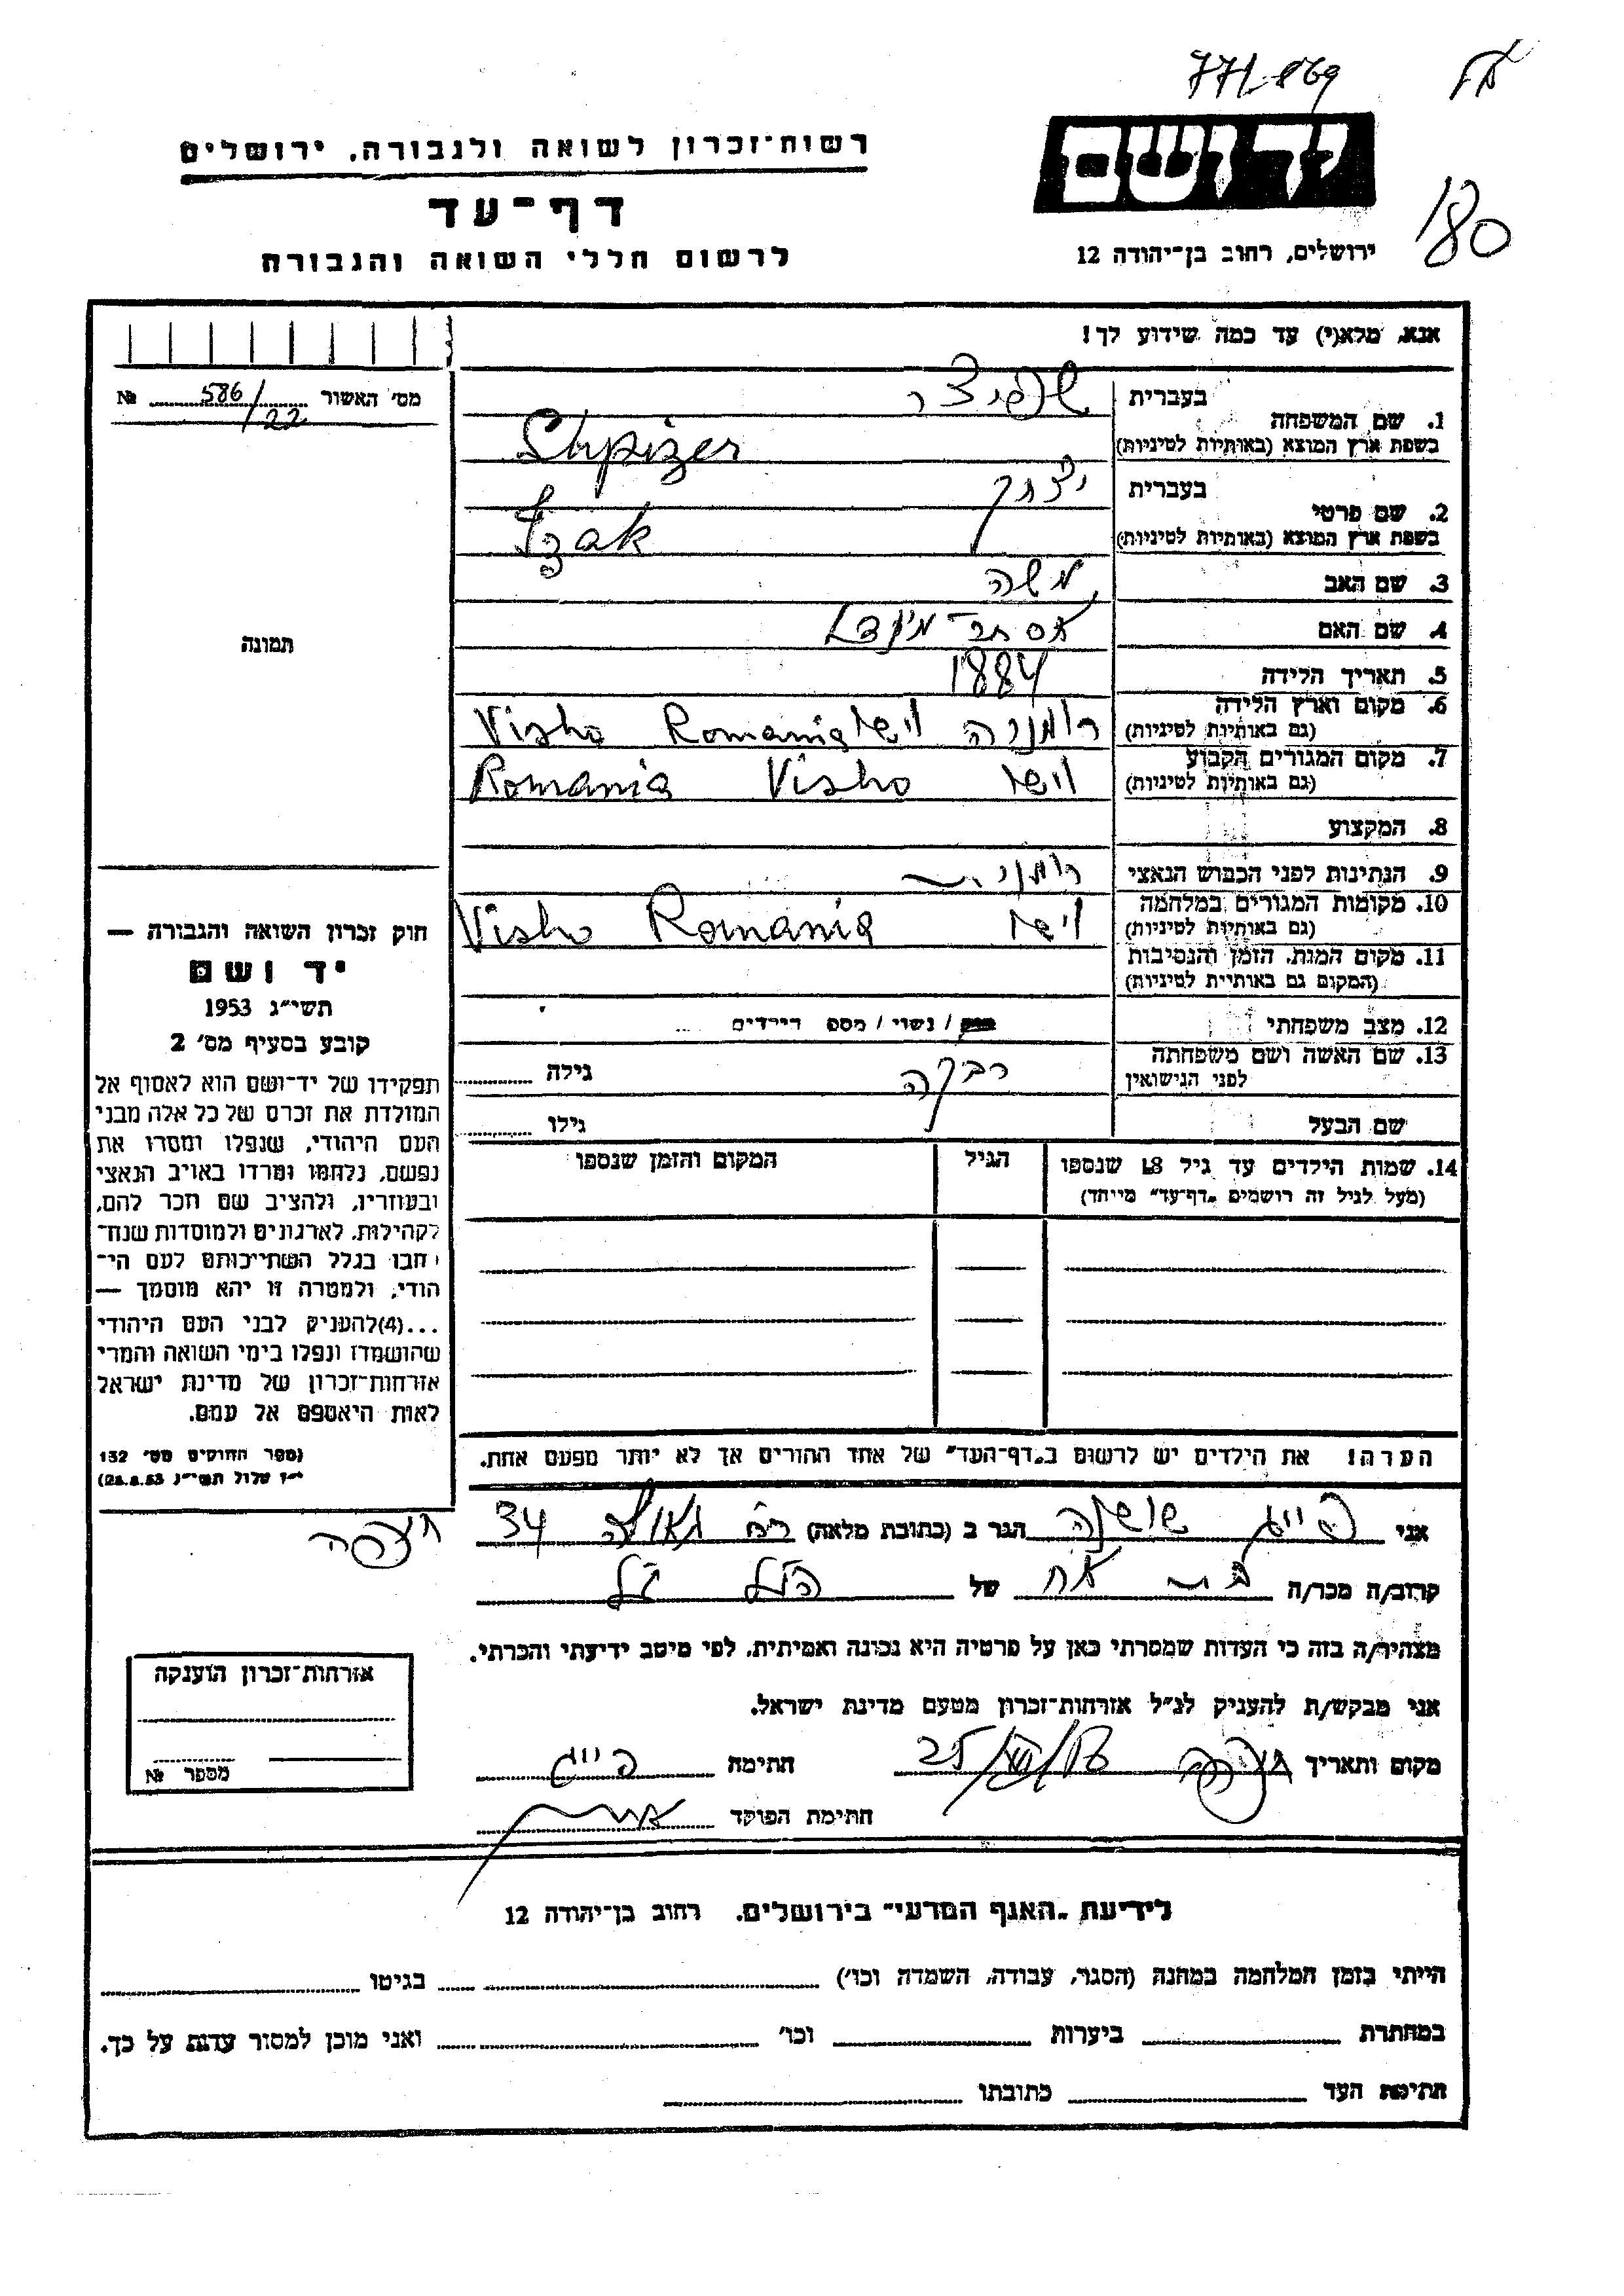 771/869
180
יד ושם
ירושלים, רחוב בן־יהודה 12
רשות־זכרון לשואה ולגבורה, ירושלים
דף־עד
לרשום חללי השואה והגבורה
אנא, מלא(י) עד כמה שידוע לך!
מס׳ האשור 586/22 №
תמונה
1. שם המשפחה בעברית שפיצר
בשפת ארץ המוצא (באותיות לטיניות) Shpizer
2. שם פרטי בעברית יצחק
בשפת ארץ המוצא (באותיות לטיניות) Izak
3. שם האב משה
4. שם האם אסתר־מינדל
5. תאריך הלידה 1884
6. מקום וארץ הלידה (גם באותיות לטיניות) רומניה וישו Romania Visho
7. מקום המגורים הקבוע (גם באותיות לטיניות) וישו Visho Romania
8. המקצוע
9. הנתינות לפני הכבוש הנאצי רומנית
10. מקומות המגורים במלחמה (גם באותיות לטיניות) וישו Romania Visho
11. מקום המות, הזמן והנסיבות (המקום גם באותיות לטיניות)
12. מצב משפחתי רווק / נשוי / מספ הילדים
13. שם האשה ושם משפחתה לפני הנישואין רבקה גילה
שם הבעל גילו
14. שמות הילדים עד גיל 18 שנספו הגיל המקום והזמן שנספו
(מעל לגיל זה רושמים „דף־עד” מיוחד)
הערה! את הילדים יש לרשום ב„דף־העד” של אחד ההורים אך לא יותר מפעם אחת.
חוק זכרון השואה והגבורה —
יד ושם
תשי״ג 1953
קובע בסעיף מס׳ 2
תפקידו של יד־ושם הוא לאסוף אל
המולדת את זכרם של כל אלה מבני
העם היהודי, שנפלו ומסרו את
נפשם, נלחמו ומרדו באויב הנאצי
ובעוזריו, ולהציב שם וזכר להם,
לקהילות, לארגונים ולמוסדות שנח־
רבו בגלל השתייכותם לעם הי־
הודי, ולמטרה זו יהא מוסמך —
...(4)להעניק לבני העם היהודי
שהושמדו ונפלו בימי השואה והמרי
אזרחות־זכרון של מדינת ישראל
לאות היאספם אל עמם.
(ספר החוקים מס׳ 132
י״ז אלול תשי״ג 28.8.53)
אני פייג שושנה הגר ב (כתובת מלאה) רח גאולה 34 חיפה
קרוב/ה מכר/ה בת אח של הנ״ל
מצהיר/ה בזה כי העדות שמסרתי כאן על פרטיה היא נכונה ואמיתית, לפי מיטב ידיעתי והכרתי.
אני מבקש/ת להעניק לנ״ל אזרחות־זכרון מטעם מדינת ישראל.
מקום ותאריך חיפה חתימה פייג
חתימת הפוקד
אזרחות־זכרון הוענקה
מספר №
לידיעת „האגף המדעי” בירושלים, רחוב בן־יהודה 12
הייתי בזמן המלחמה במחנה (הסגר, עבודה, השמדה וכו׳) בגיטו
במחתרת ביערות וכו׳ ואני מוכן למסור עדות על כך.
חתימת העד כתובתו